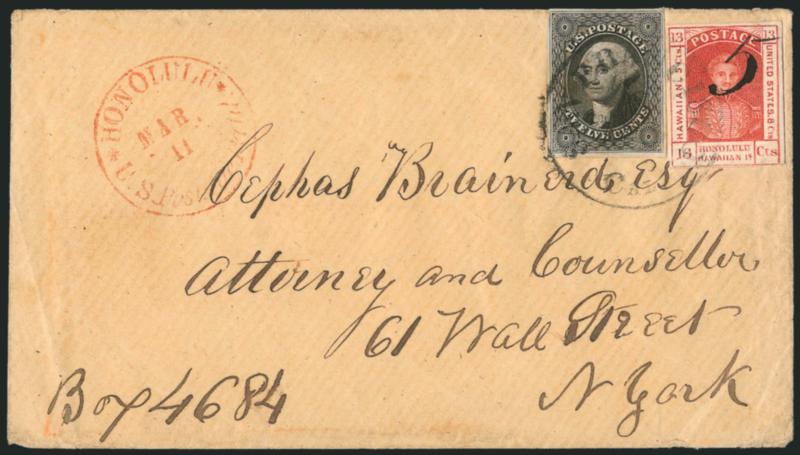 HONOLULU
MAR.
11
U.S. Post
U.S. POSTAGE
TWELVE CENTS
13 POSTAGE 13
HAWAIIAN 5 Cts
UNITED STATES. 8 Cts
5
13 HONOLULU Cts
Cephas Brainerd, Esq
Attorney and Counsellor
61 Wall Street
N York
Box 4684